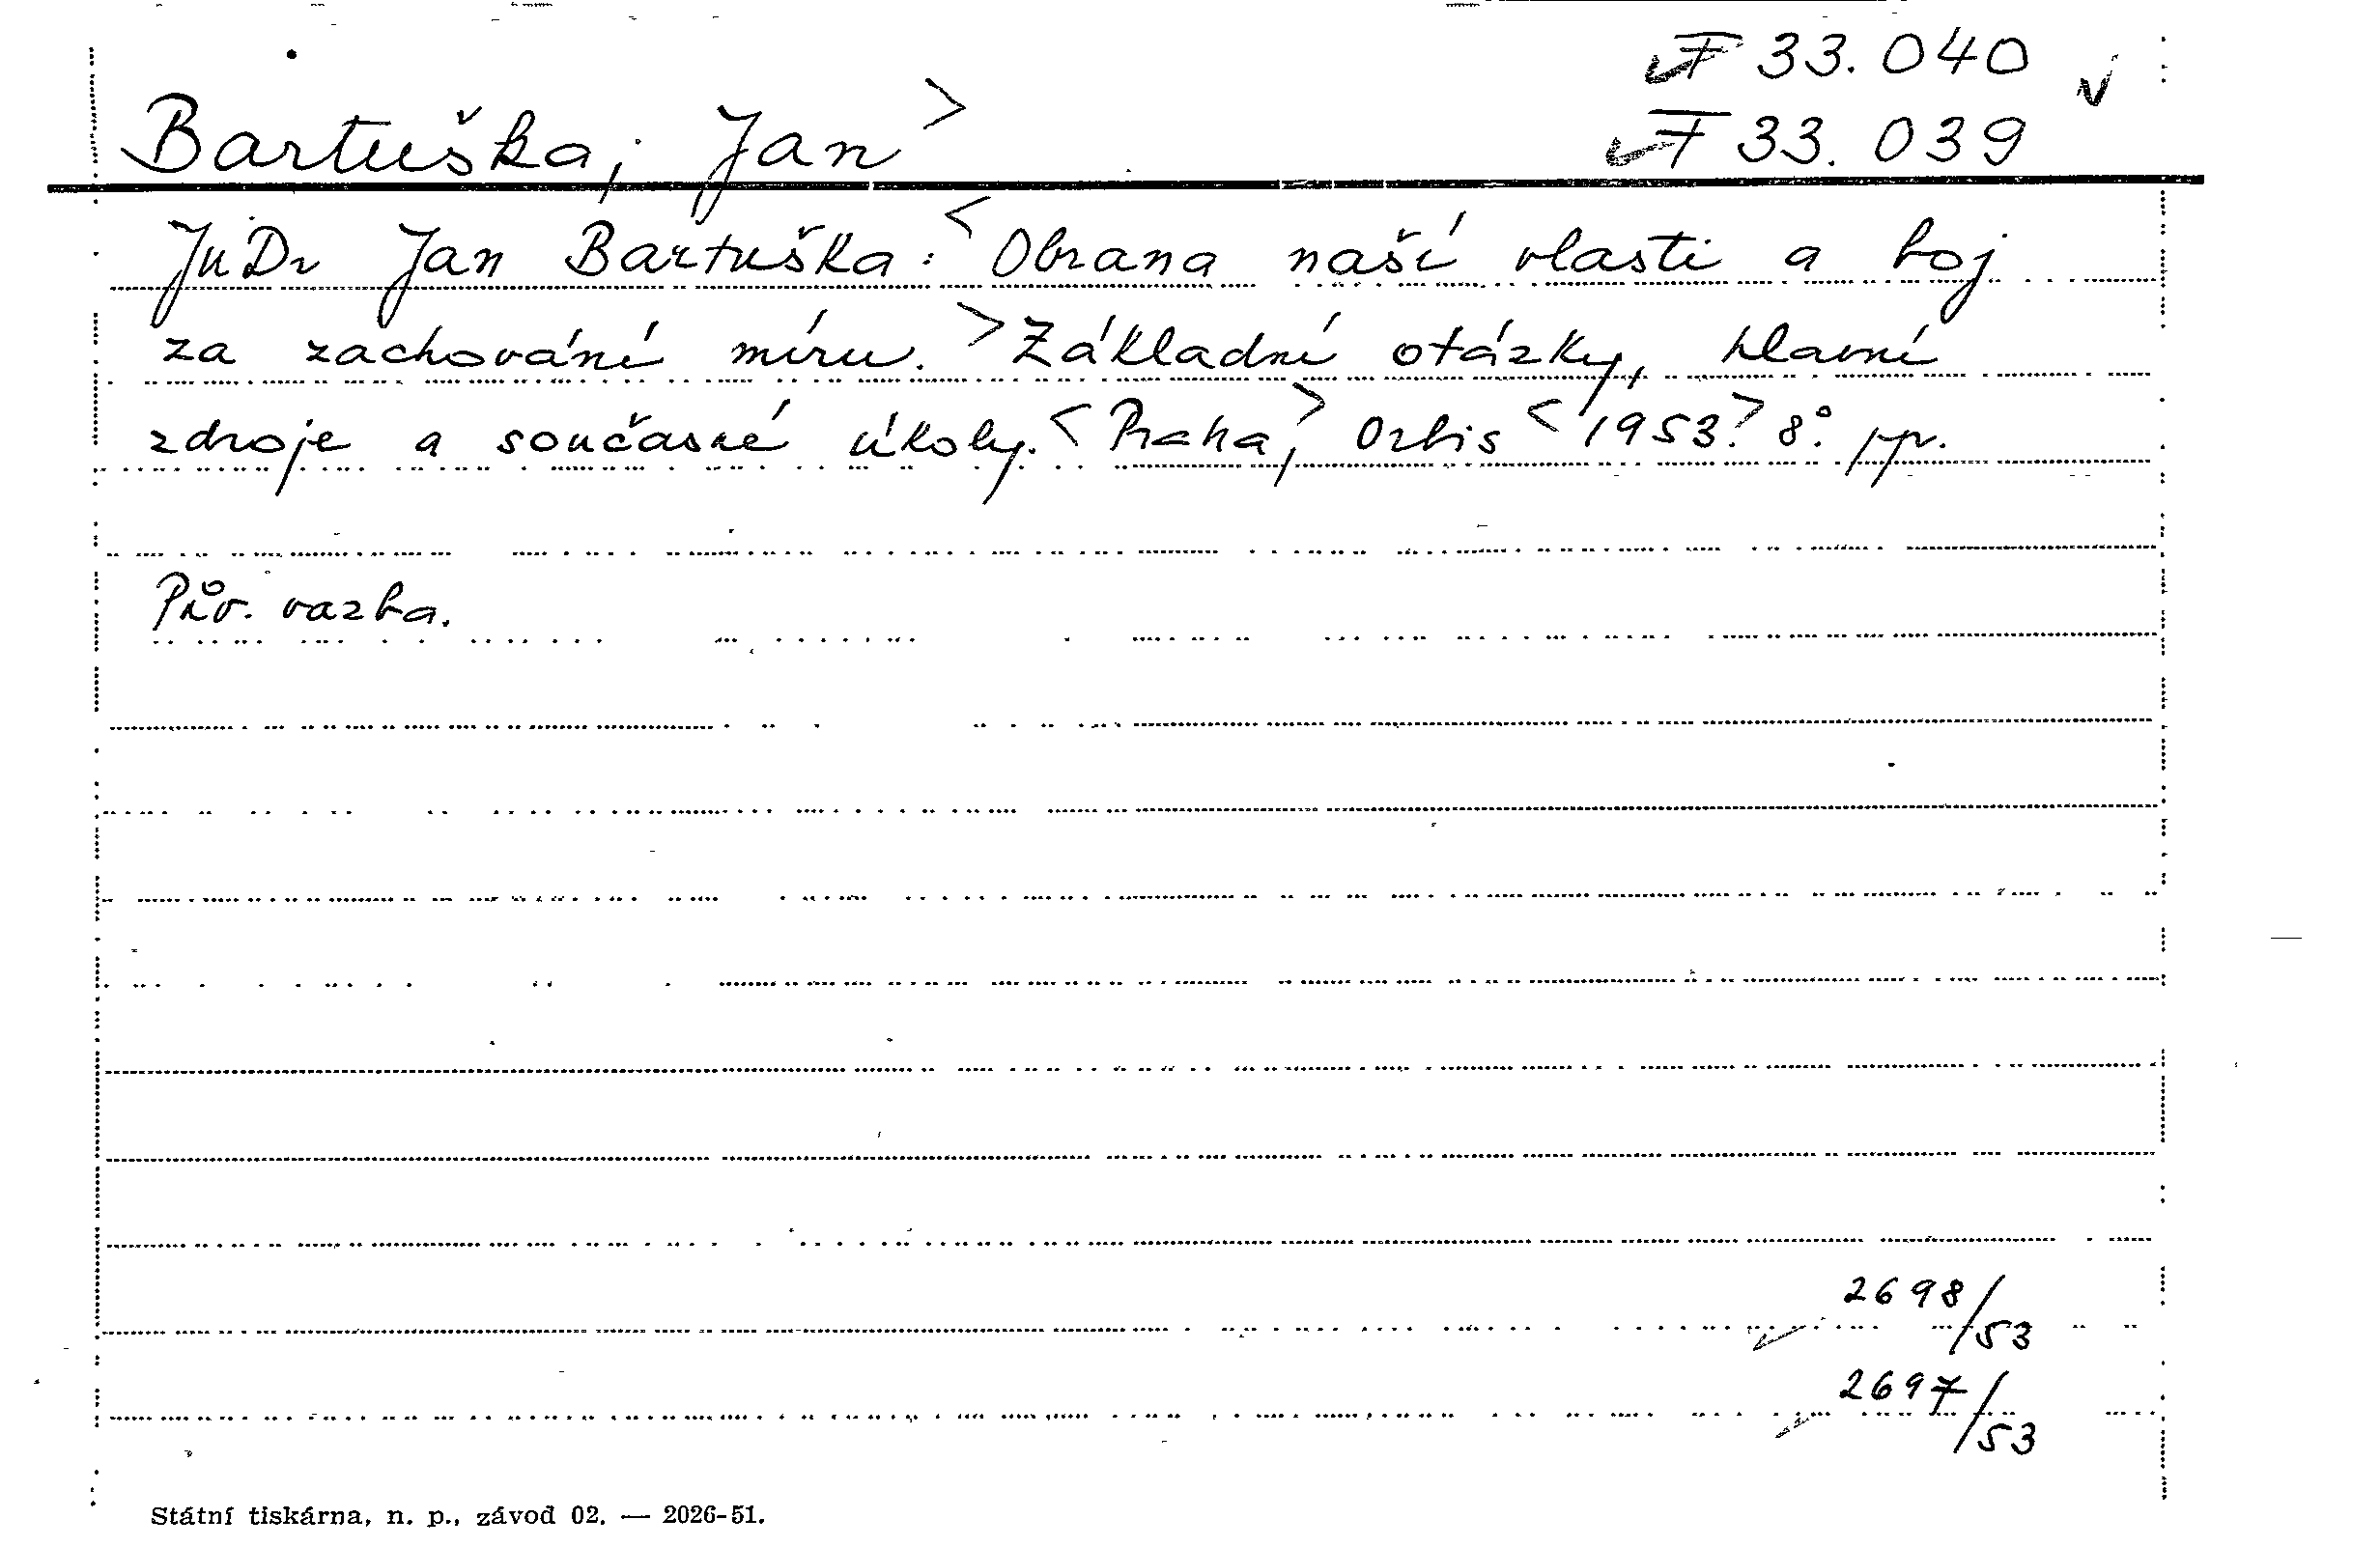 F 33.040
Bartuška, Jan>
F 33.039
JuDr Jan Bartuška: <Obrana naší vlasti a boj
za zachování míru. >Základní otázky, hlavní
zdroje a současné úkoly. <Praha,> Orbis <1953.> 8°. ppr.
Pův. vazba.
2698/53
2697/53
Státní tiskárna, n. p., závod 02. — 2026-51.